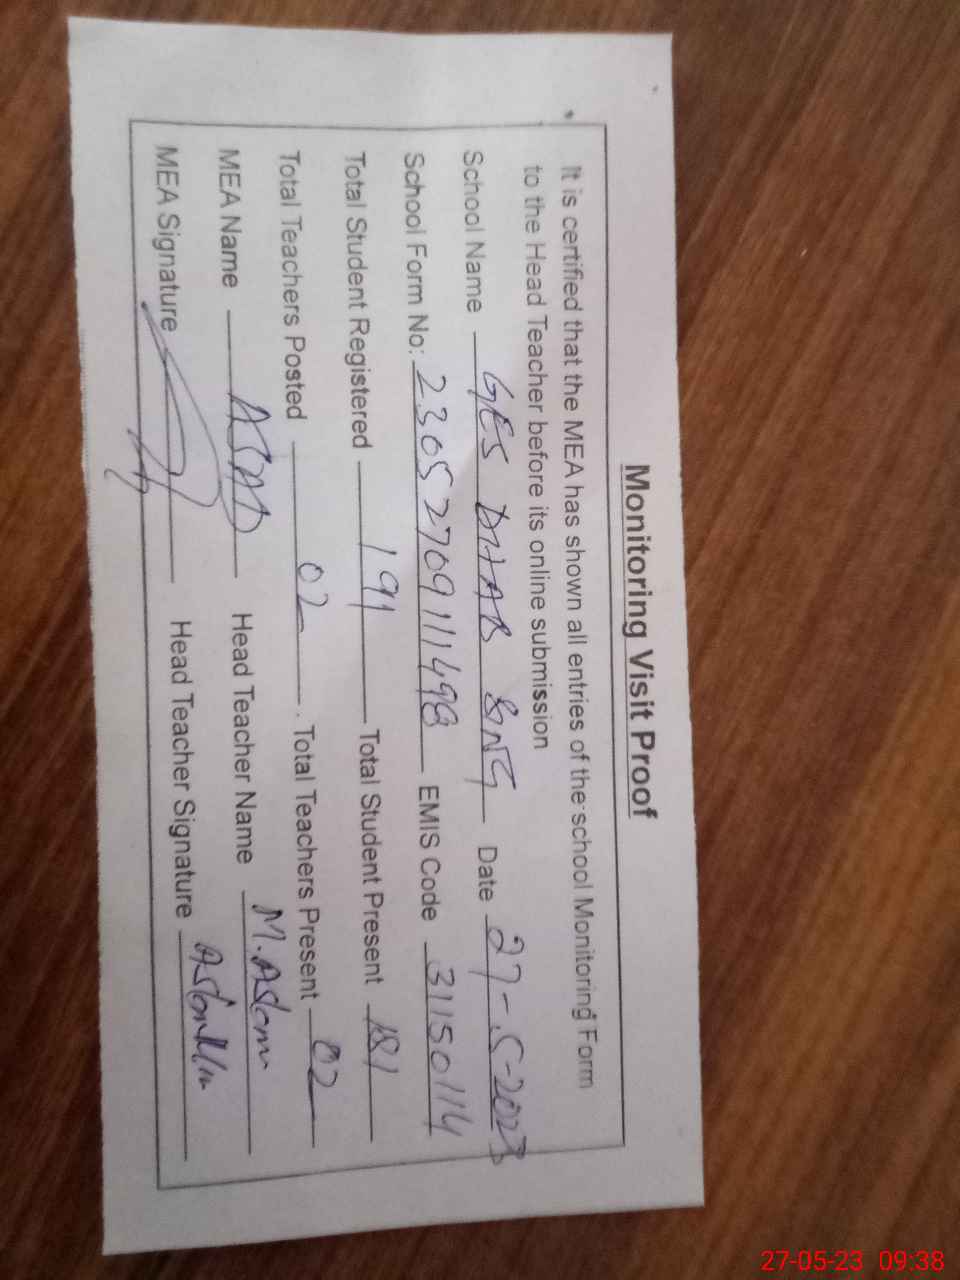 Monitoring Visit Proof
It is certified that the MEA has shown all entries of the school Monitoring Form
to the Head Teacher before its online submission
School Name GES DHAB Date 27-5-2023
School Form No: 230527091111498 EMIS Code 31150114
Total Student Registered 191 Total Student Present 181
Total Teachers Posted 02 Total Teachers Present 02
MEA Name ASAD Head Teacher Name M. Aslam
MEA Signature Head Teacher Signature
27-05-23 09:38